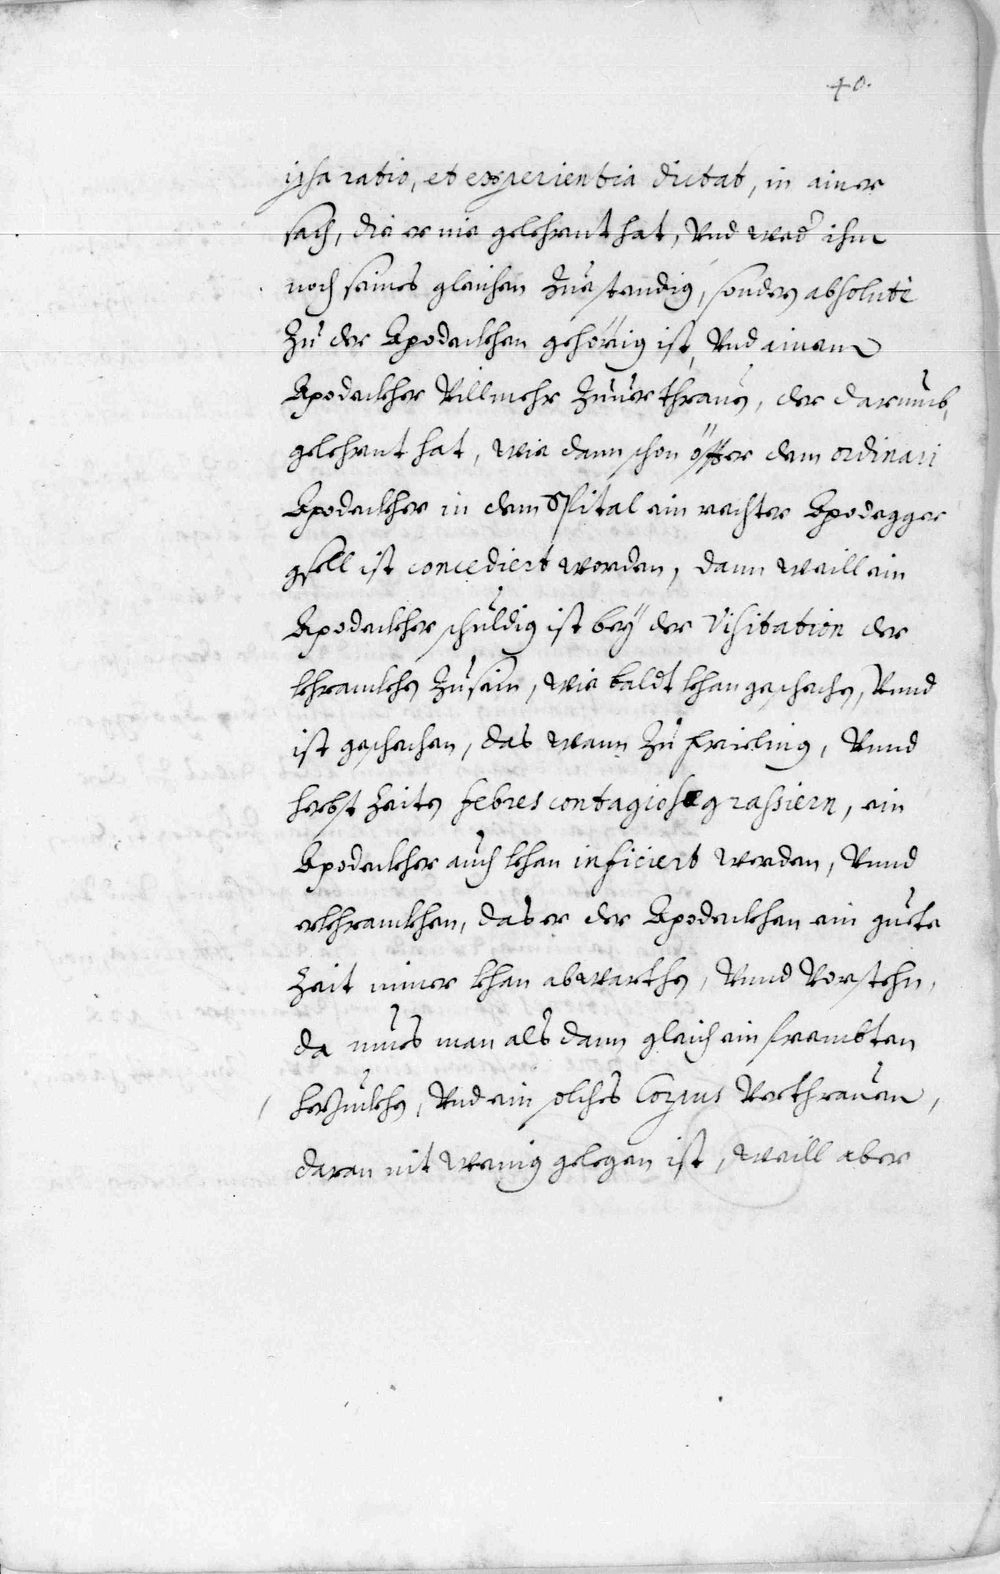 40.
ipsa ratio, et experientia dictat, in ainer
sach, die er nie gelehrnt hat, Vnd wed' ihm
noch seines gleichen Zuestendig, sonder absolutè
Zu der Apodeckhen gehörig ist, Vnd ainem
Apodeckher Villmehr Zuuerthrauen, der darumb
gelehrnt hat, wie dann schon öffter dem ordinari
Apodeckher in dem Spital ein rechter Apodegger
gsell ist concediert worden, dann weill ein
Apodeckher schuldig ist beÿ der Visitation der
khranckhen Zu sein, wie baldt khan geschechen, Vnnd
ist geschechen, das wann Zu frieling, Vnnd
herbst Zeiten febres contagiosæ grassiern, ein
Apodeckher auch khan inficiert werden, Vnnd
erkhranckhen, das er der Apodeckhen ein guete
Zeit nimer khan abwarthen, Vnnd Vorstehn,
da mues man als dann gleich ein frembten
herzuckhen, Vnd ein solches Corpus Verthrauen,
daran nit wenig gelegen ist, weill aber